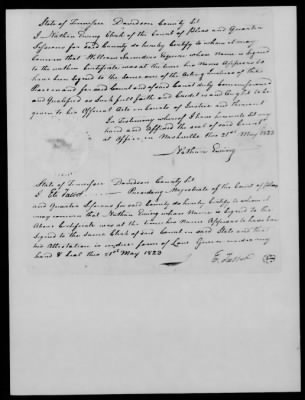 State of Tennessee Davidson County Sct
I Nathan Ewing Clerk of the Court of Pleas and Quarter
Sessions for Said County do hereby Certify to whom it may
Concern that William Saunders Esquire whose name is Signed
to the within Certificate was at the time his Name Appears to
have been Signed to the Same one of the Acting Justices of the
Peace in and for said County and of said Court duly Commissioned
and Qualified as Such full faith and Credit is and Ought to be
given to his Official Acts in Courts of Justice and thereout
In Testimony whereof I have hereunto set my
hand and Affixed the seal of said Court
at Office in Nashville this 21st May 1823
Nathan Ewing
State of Tennessee Davidson County Sct
I Eli Talbot Presiding Magistrate of the Court of Pleas
and Quarter Sessions for said County do hereby Certify to whom it
may concern that Nathan Ewing whose Name is Signed to the
Above Certificate was at the time his Name Appears to have been
Signed to the Same Clerk of said Court in said State and that
his Attestation is in due form of Law Given under my
hand & Seal this 21st May 1823
E. Talbot